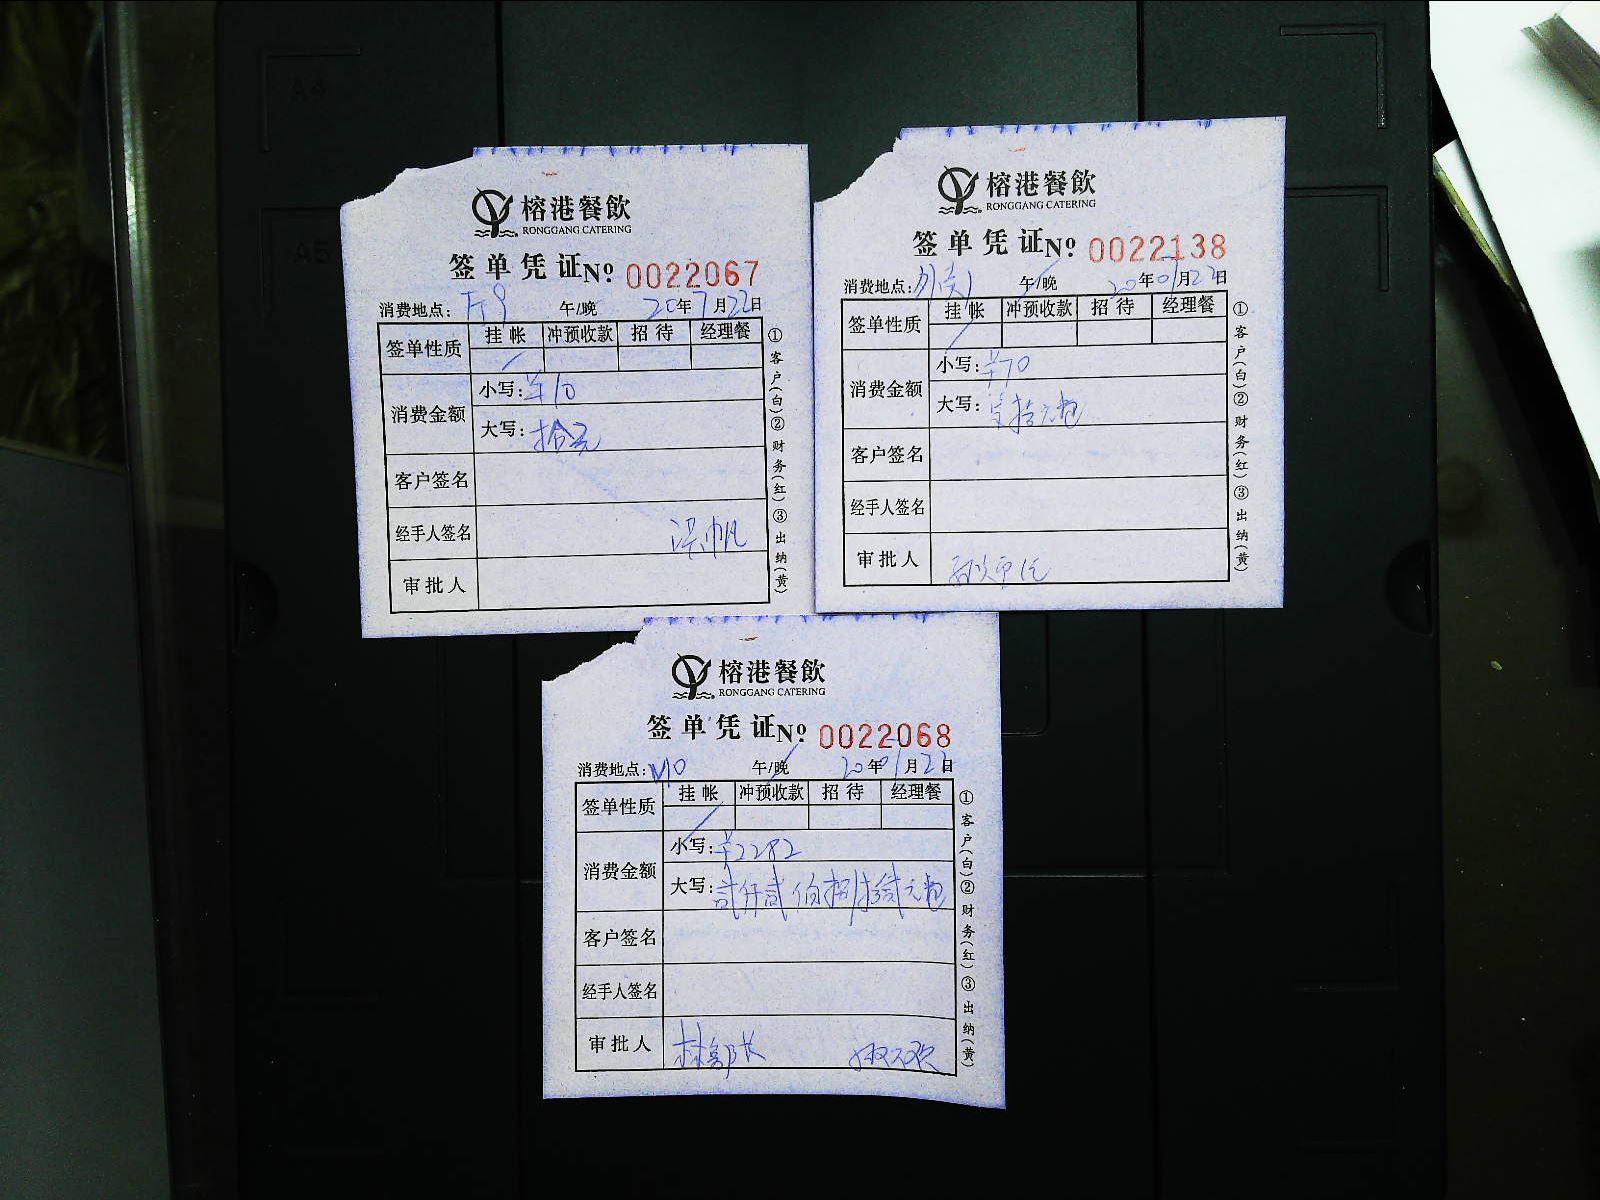 榕港餐飲
RONGGANG CATERING
签单凭证№ 0022067
消费地点：厅9 午/晚 20年7月22日
签单性质 挂帐 冲预收款 招待 经理餐
消费金额 小写：￥10
大写：拾元
客户签名
经手人签名
审批人
①客户(白)②财务(红)③出纳(黄)
榕港餐飲
RONGGANG CATERING
签单凭证№ 0022138
消费地点： 午/晚 20年01月22日
签单性质 挂帐 冲预收款 招待 经理餐
消费金额 小写：￥70
大写：
客户签名
经手人签名
审批人
①客户(白)②财务(红)③出纳(黄)
榕港餐飲
RONGGANG CATERING
签单凭证№ 0022068
消费地点：V10 午/晚 20年01月22日
签单性质 挂帐 冲预收款 招待 经理餐
消费金额 小写：￥2282
大写：贰仟贰佰捌拾贰元
客户签名
经手人签名
审批人 林部长
①客户(白)②财务(红)③出纳(黄)
A4
A5